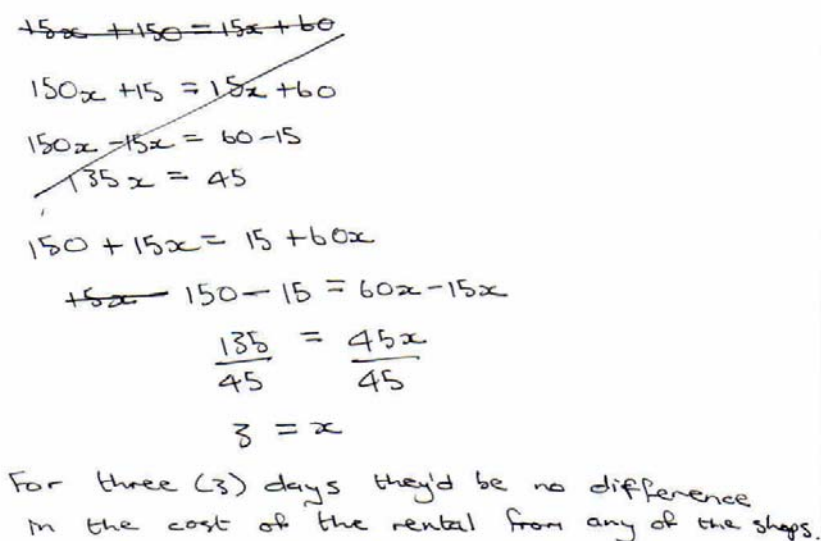 15x + 150 = 15x + 60
150x + 15 = 15x + 60
150x - 15x = 60 - 15
135x = 45
150 + 15x = 15 + 60x
15x - 150 - 15 = 60x - 15x
135/45 = 45x/45
3 = x
For three (3) days they'd be no difference
in the cost of the rental from any of the shops.